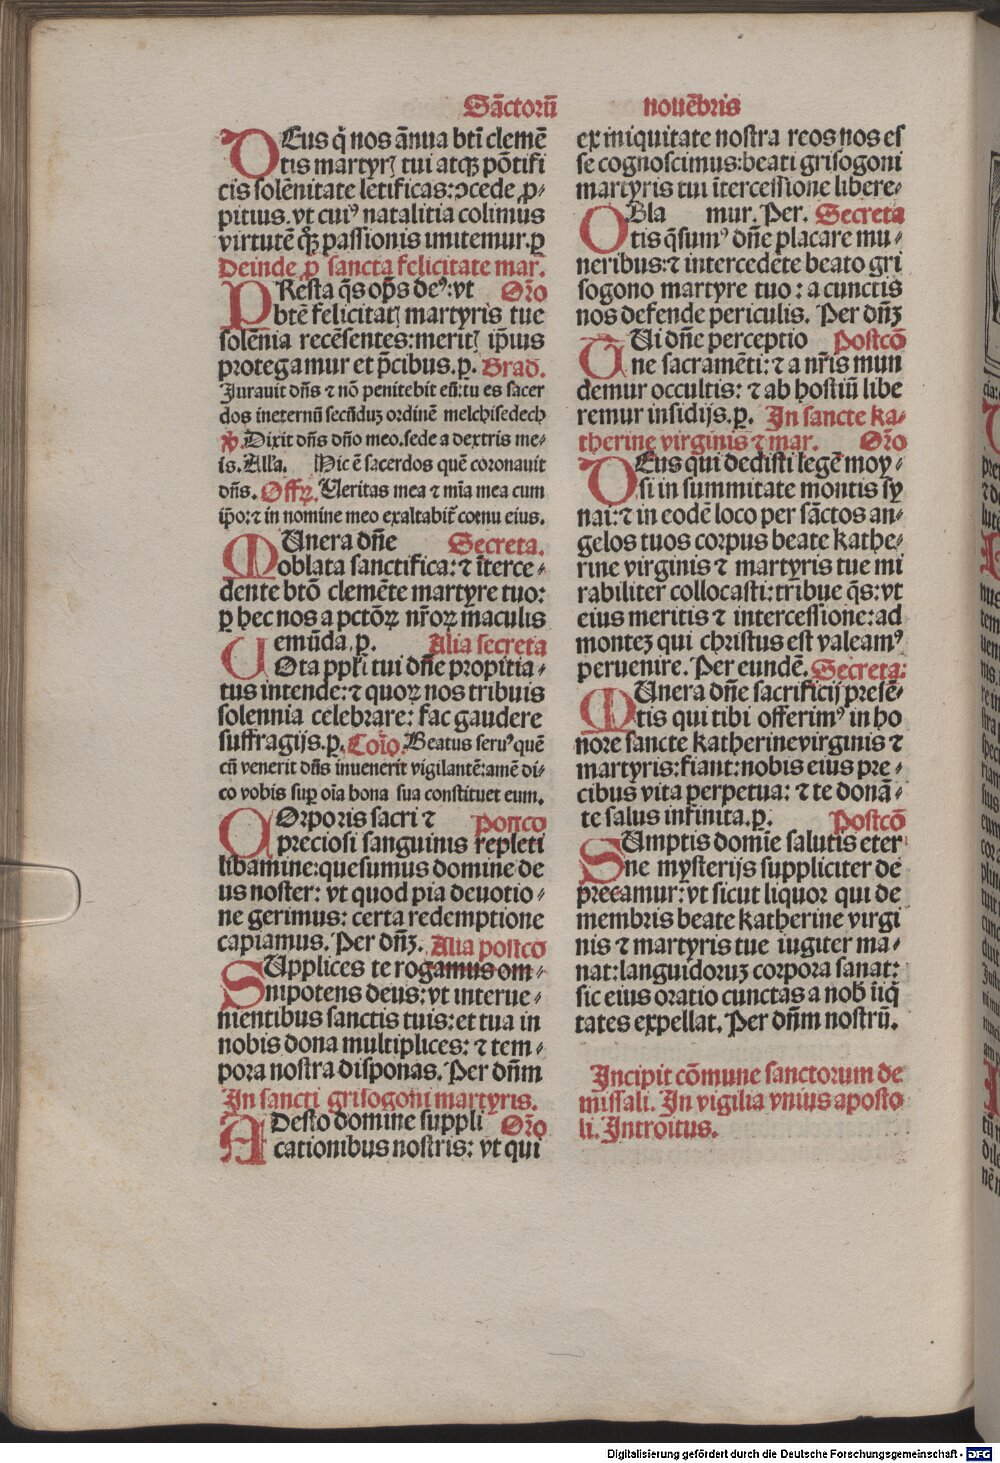 Sāctorū nouēbris
DEus q̄ nos ānua btī clemē
tis martyrꝭ tui atqꝫ pōtifi
cis solēnitate letificas: ↄcede ꝓ-
pitius. vt cuiꝰ natalitia colimus
virtutē qꝫ passionis imitemur. ꝑ
Deinde ꝓ sancta felicitate mar.
PResta q̄s op̄s deꝰ: vt Orō
btē felicitatꝭ martyris tue
solēnia recēsentes: meritꝭ ip̄ius
protegamur et p̄cibus. ꝑ. Grad.
Jurauit dn̄s ⁊ nō penitebit eū: tu es sacer
dos in eternū secūduꝫ ordinē melchisedech
℣. Dixit dn̄s dn̄o meo. sede a dextris me-
is. All'a. Hic ē sacerdos quē coronauit
dn̄s. Offꝝ. Ueritas mea ⁊ mīa mea cum
ip̄o: ⁊ in nomine meo exaltabit̄ cornu eius.
MUnera dn̄e Secreta.
oblata sanctifica: ⁊ īterce-
dente btō clemēte martyre tuo:
ꝑ hec nos a pctōꝝ nr̄oꝝ maculis
emūda. ꝑ. Alia secreta
UOta ppl̄i tui dn̄e propitia-
tus intende: ⁊ quoꝝ nos tribuis
solennia celebrare: fac gaudere
suffragijs. ꝑ. Coīo. Beatus seruꝰ quē
cū venerit dn̄s inuenerit vigilantē: amē di-
co vobis suꝑ oīa bona sua constituet eum.
COrporis sacri ⁊ Postco
preciosi sanguinis repleti
libamine: quesumus domine de
us noster: vt quod pia deuotio-
ne gerimus: certa redemptione
capiamus. Per dn̄ꝫ. Alia postco
SUpplices te rogamus om-
nipotens deus: vt interue-
nientibus sanctis tuis: et tua in
nobis dona multiplices: ⁊ tem-
pora nostra disponas. Per dn̄m
In sancti grisogoni martyris.
ADesto domine suppli Orō
cationibus nostris: vt qui
ex iniquitate nostra reos nos es
se cognoscimus: beati grisogoni
martyris tui īntercessione libere-
OBla mur. Per. Secreta
tis q̄sumꝰ dn̄e placare mu-
neribus: ⁊ intercedēte beato gri
sogono martyre tuo: a cunctis
nos defende periculis. Per dn̄ꝫ
UUi dn̄e perceptio Postcō
ne sacramēti: ⁊ a nr̄is mun
demur occultis: ⁊ ab hostiū libe
remur insidijs. ꝑ. In sancte ka-
therine virginis ⁊ mar. Orō
DEus qui dedisti legē moy-
si in summitate montis sy
nai: ⁊ in eodē loco per sāctos an-
gelos tuos corpus beate kathe-
rine virginis ⁊ martyris tue mi
rabiliter collocasti: tribue q̄s: vt
eius meritis ⁊ intercessione: ad
monteꝫ qui christus est valeamꝰ
peruenire. Per eundē. Secreta:
MUnera dn̄e sacrificij presē-
tis qui tibi offerimꝰ in ho
nore sancte katherine virginis ⁊
martyris: fiant: nobis eius pre-
cibus vita perpetua: ⁊ te donā-
te salus infinita. ꝑ. Postcō
SUmptis domīe salutis eter
ne mysterijs suppliciter de
precamur: vt sicut liquor qui de
membris beate katherine virgi
nis ⁊ martyris tue iugiter ma-
nat: languidoruꝫ corpora sanat:
sic eius oratio cunctas a nob̄ iīq̄
tates expellat. Per dn̄m nostrū.
Incipit cōmune sanctorum de
missali. In vigilia vnius aposto
li. Introitus.
Digitalisierung gefördert durch die Deutsche Forschungsgemeinschaft - DFG